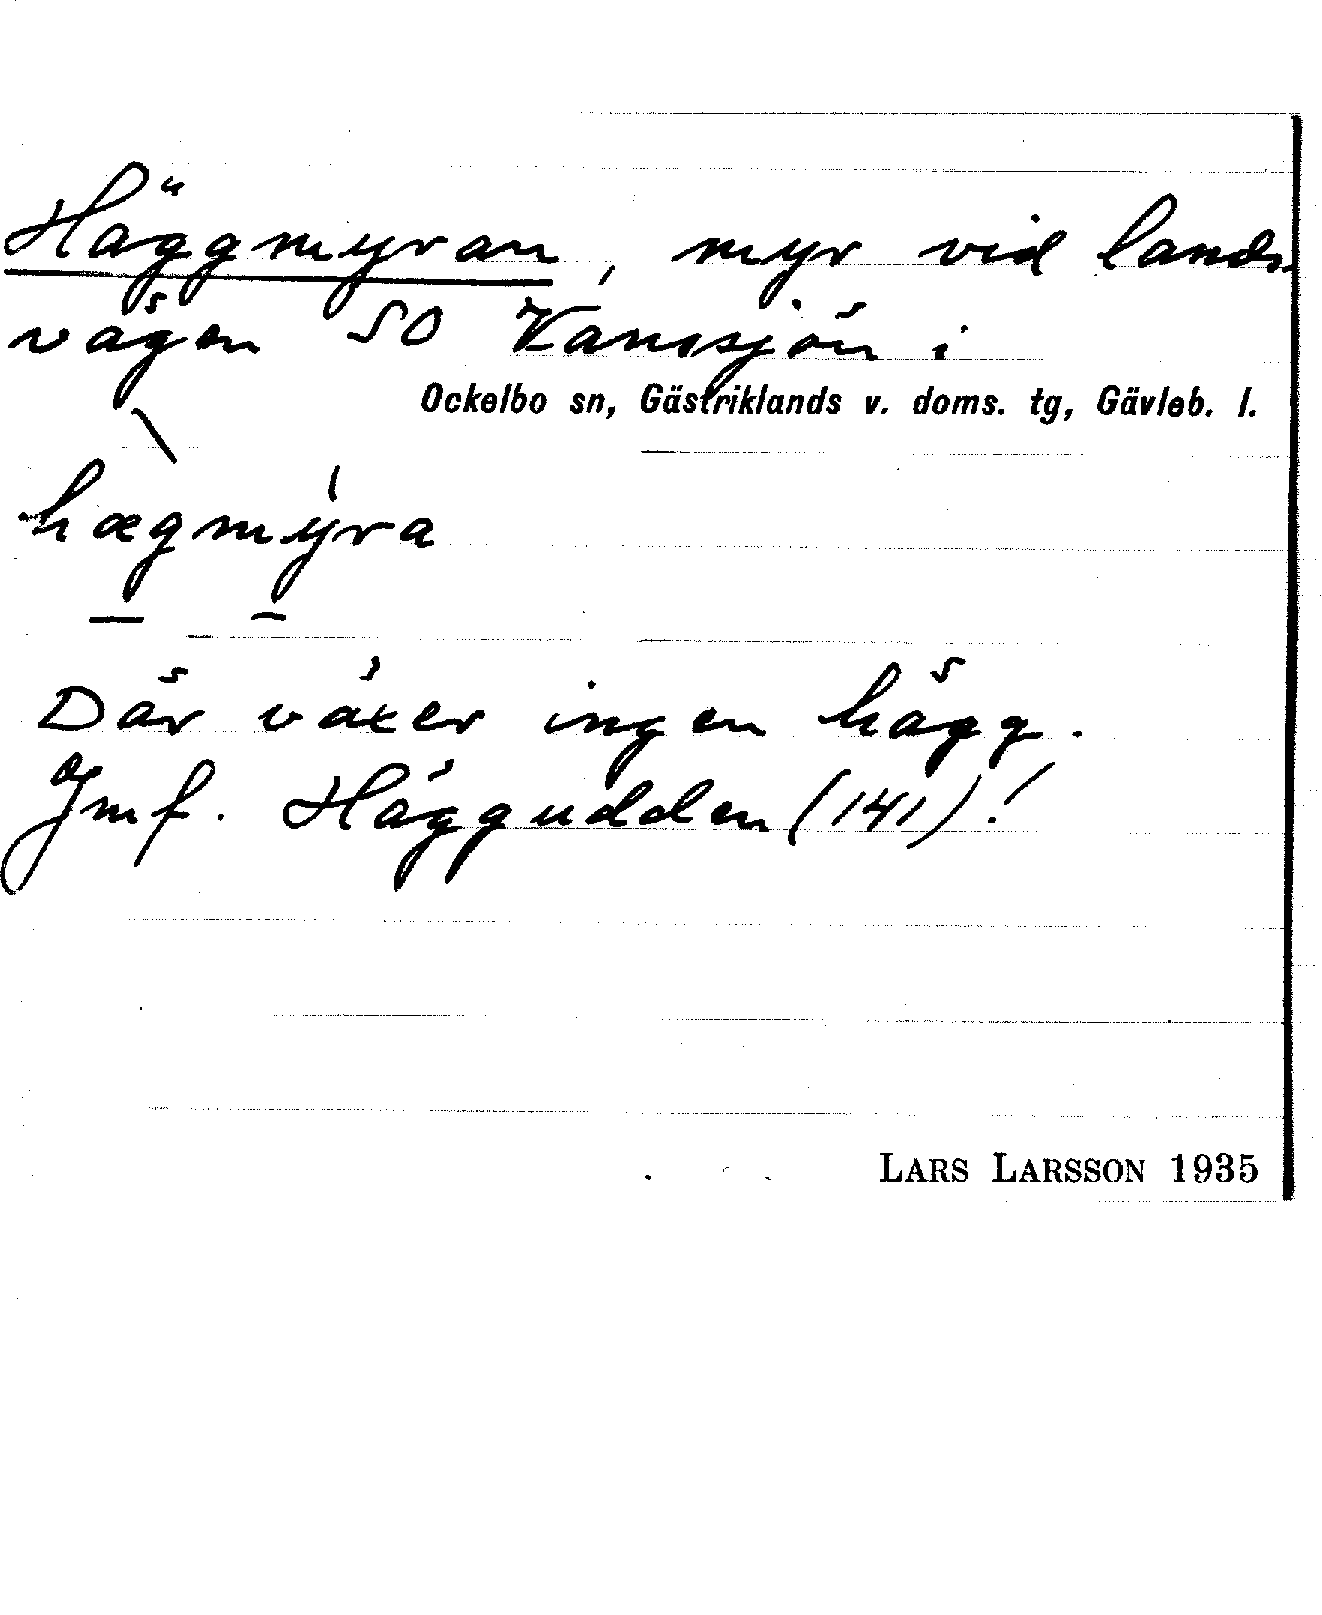 Häggmyran, myr vid lands-
vägen SO Vansjön i
Ockelbo sn, Gästriklands v. doms. tg, Gävleb. l.
hægmy̍ra
Där växer ingen hägg.
Jmf. Häggudden (141)!
LARS LARSSON 1935